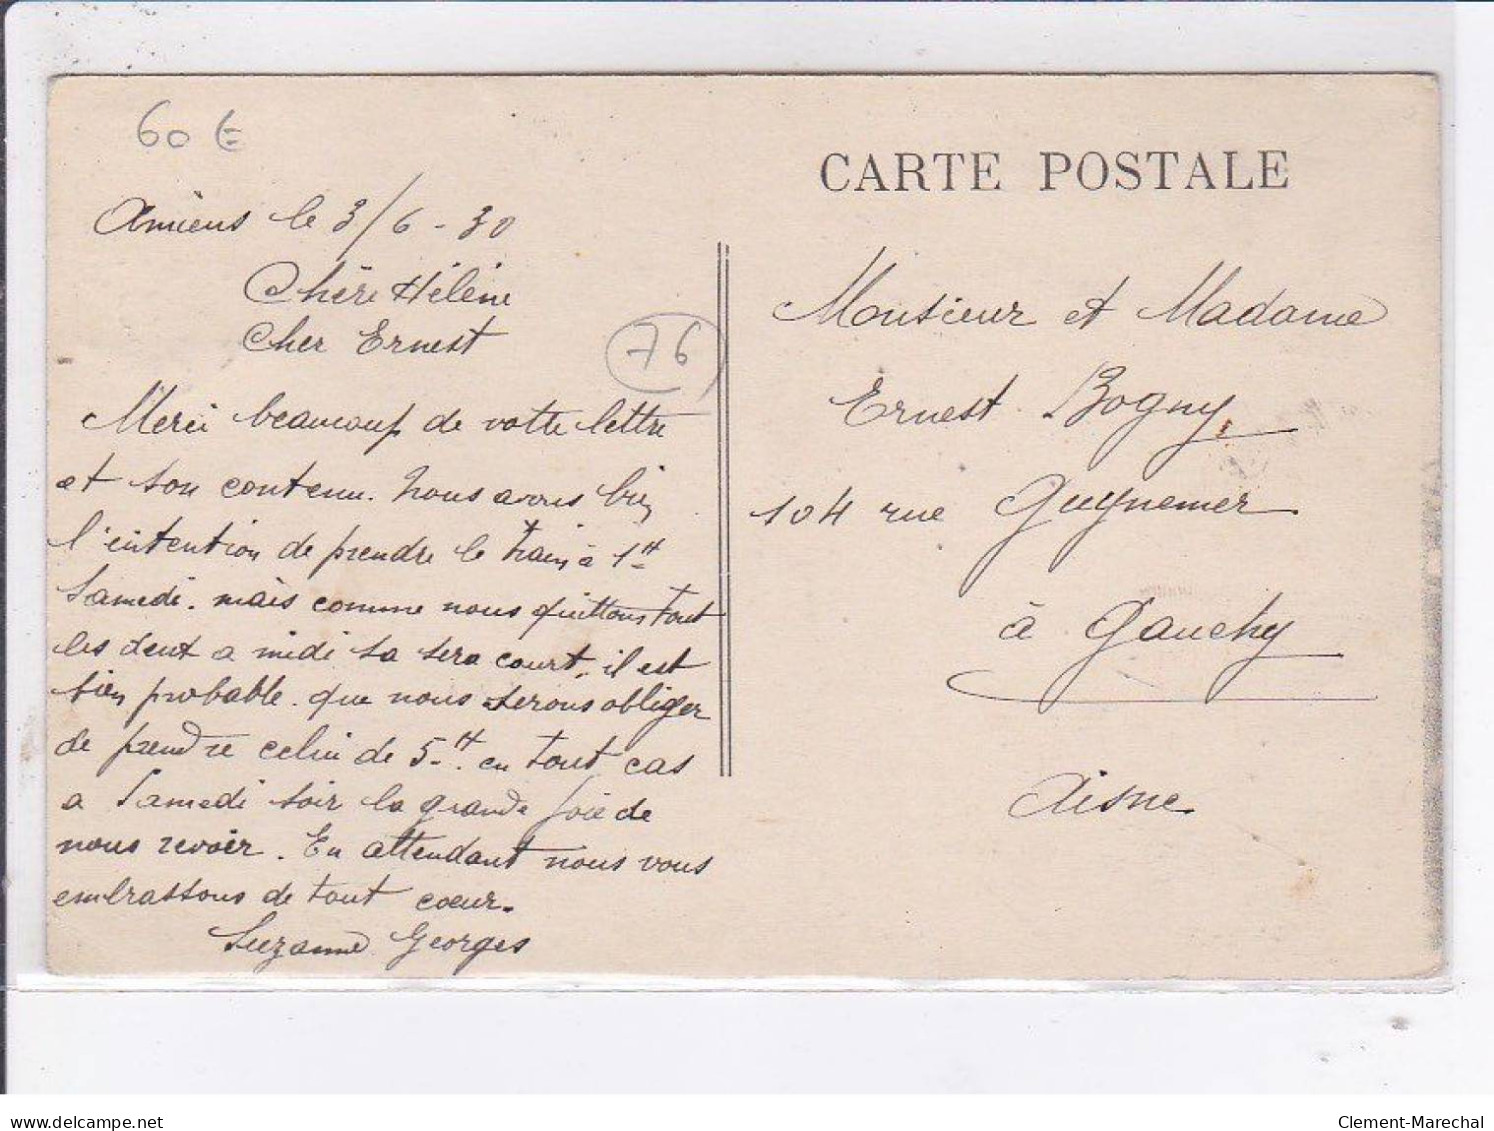 60 €
CARTE POSTALE
Amiens le 3/6-30
Chère Hélène
Cher Ernest
76
Merci beaucoup de votre lettre
et son contenu. nous avons bien
l'intention de prendre le train à 1H
Samedi. mais comme nous quittons tout
les deux a midi sa sera court, il est
bien probable que nous serons obliger
de prendre celui de 5H. en tout cas
a Samedi soir la grande joie de
nous revoir. En attendant nous vous
embrassons de tout coeur.
Suzanne Georges
Monsieur et Madame
Ernest Bogny
104 rue Guynemer
à Gauchy
Aisne
delcampe.net
Clement-Marechal